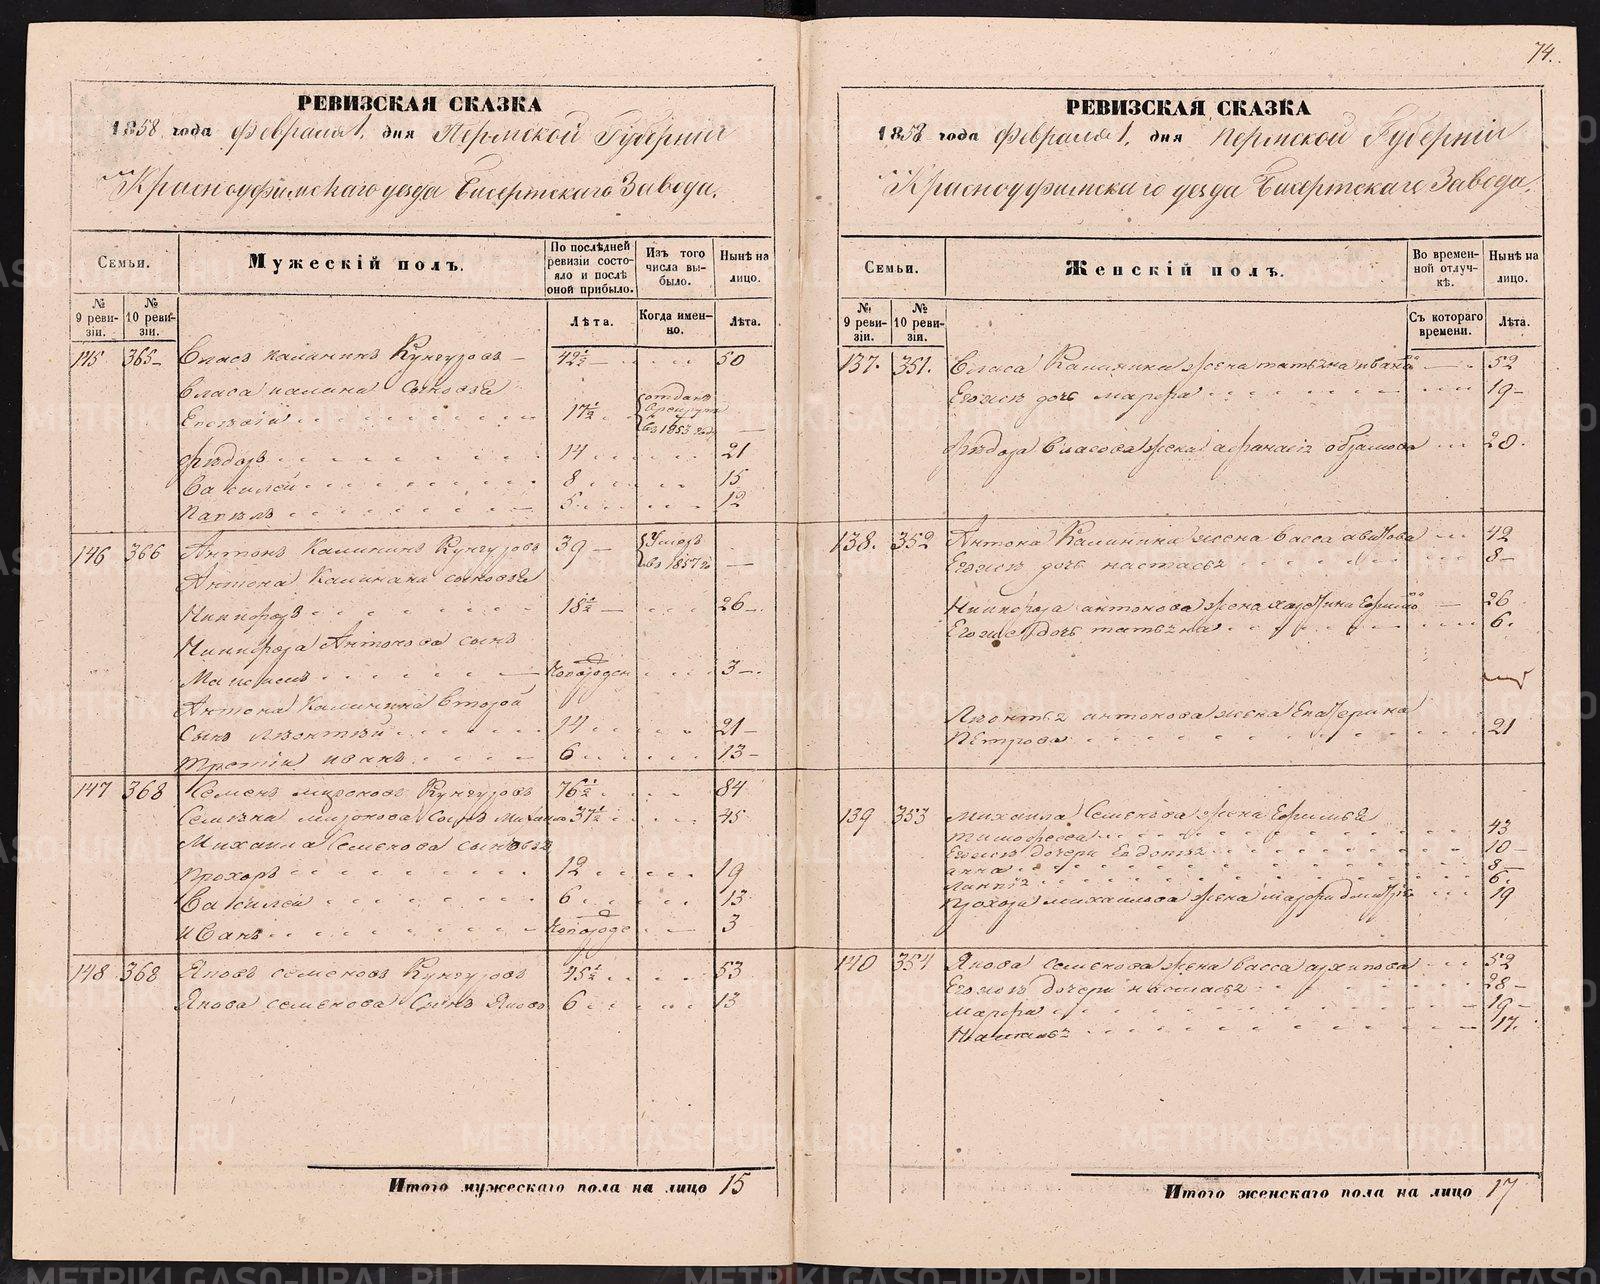 74.
РЕВИЗСКАЯ СКАЗКА
1858 года Февраля 1, дня Пермской Губерніи
Красноуфимскаго уезда Бисертскаго Завода.
Семьи.
Мужескій полъ.
По послѣдней ревизіи состояло и послѣ оной прибыло.
Изъ того числа выбыло.
Нынѣ на лицо.
№ 9 ревизіи.
№ 10 ревизіи.
Лѣта.
Когда именно.
Лѣта.
145 365 Власъ Калининъ Кунгуровъ 42½ 50
Власа Калина сыновья
17½ отданъ в рекруты въ 1853 году
Фёдоръ 14 21
Василей 8 15
Павелъ 5 12
146 366 Антонъ Калининъ Кунгуровъ 39 Умеръ въ 1857
Антона Калинина сыновья
Никифоръ 18½ 26
Никифора Антонова сынъ
Максимъ новорожден 3
Антона Калинина второй
сынъ Леонтей 14 21
третій иванъ 6 13
147 368 Семенъ миронов Кунгуровъ 76½ 84
Семена миронова сынъ Михаило 37½ 45
Михаила Семенова сыновья
Прохоръ 12 19
Василей 6 13
иванъ новорожде 3
148 368 Яковъ семеновъ Кунгуровъ 45½ 53
Якова семенова сынъ Яково 6 13
Итого мужескаго пола на лицо 15
РЕВИЗСКАЯ СКАЗКА
1858 года Февраля 1, дня Пермской Губерніи
Красноуфимскаго уезда Бисертскаго Завода.
Семьи.
Женскій полъ.
Во временной отлучкѣ.
Нынѣ на лицо.
№ 9 ревизіи.
№ 10 ревизіи.
Съ котораго времени.
Лѣта.
137. 351. Власа Калинина жена татьяна ивано 52
Егожъ дочь марфа 19
Фёдора Власова жена 28
138. 352 Антона Калинина жена васса 42
Егожъ дочь настасья 8
Никифора антонова жена 26
Егожъ дочь татьяна 6.
Леонтья антонова жена Екатерина
Петрова 21
139 353 Михаила Семенова жена Ефимья
тимофеева 43
Егожъ дочери Евдотья 10
анна 8
6.
Прохора михаилова жена марфа дмитріе 19
140 354 Якова семенова жена васса архипова 52
Егожъ дочери настасья 28
марфа 19
Наталья 17.
Итого женскаго пола на лицо 17
METRIKI.GASO-URAL.RU